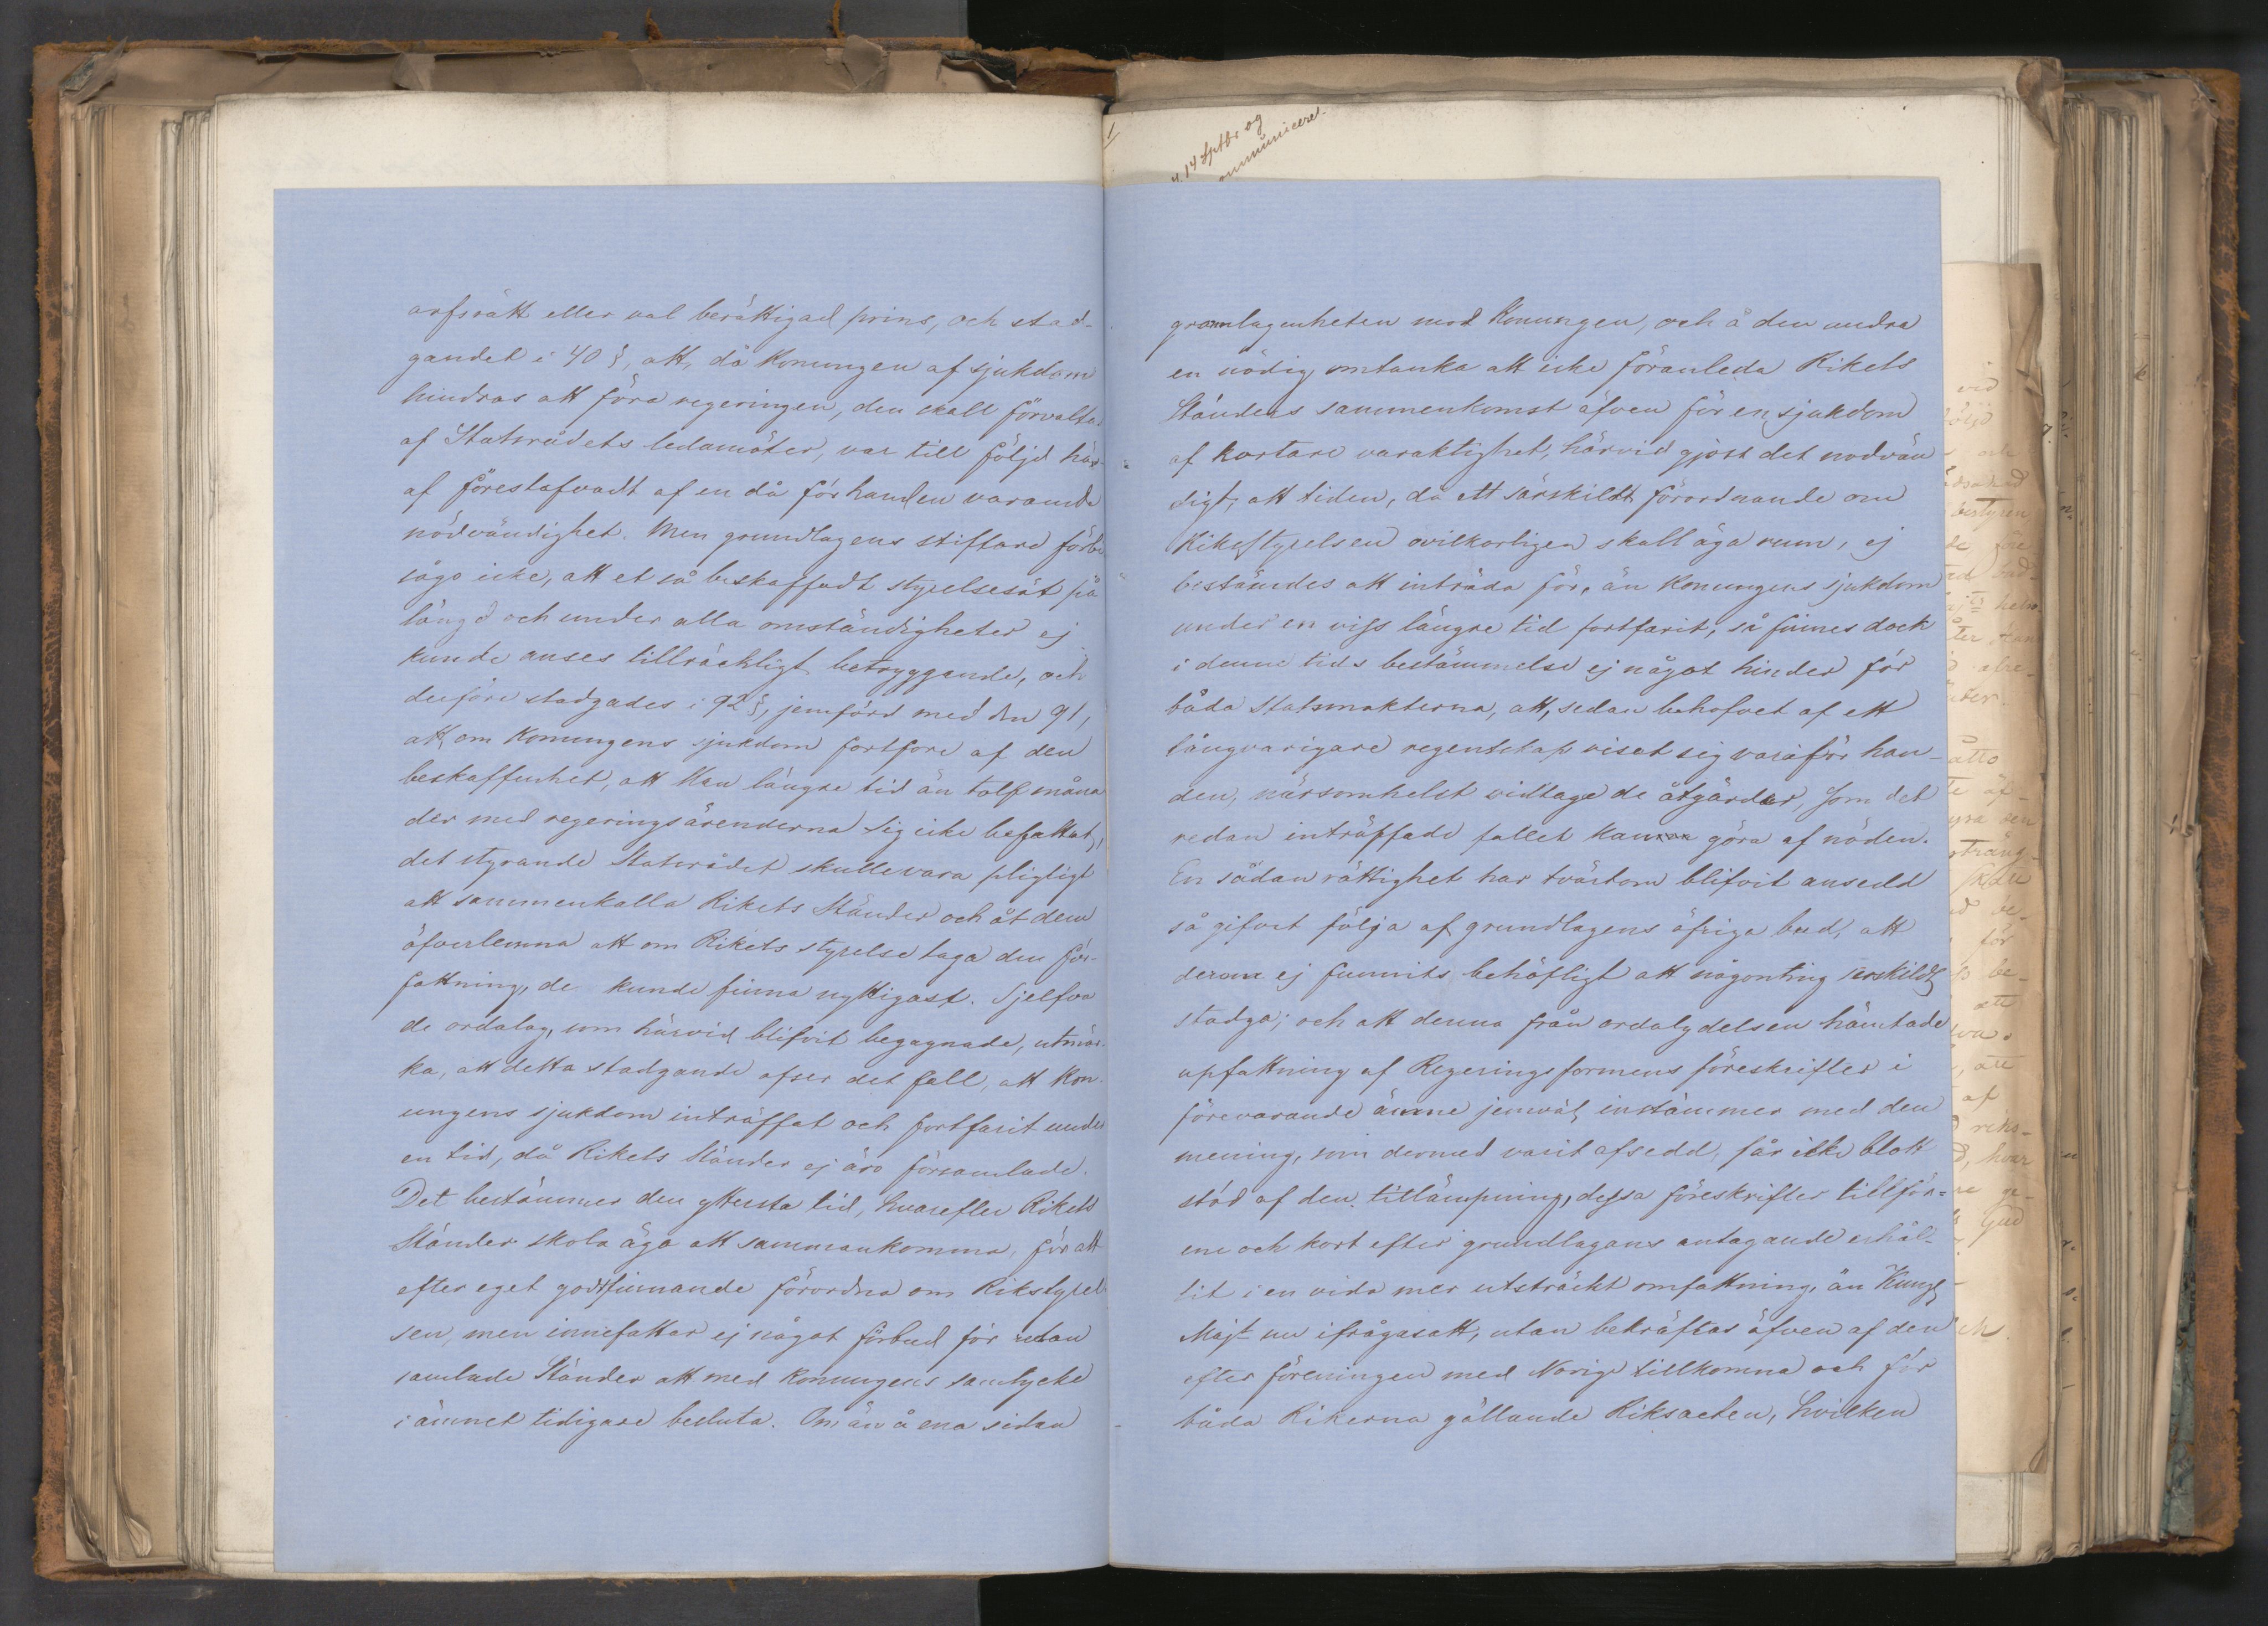 arfsrätt eller val berättigad prins, och stad-
gandet i 40 §, att, då Konungen af sjukdom
hindras att föra regeringen, den skall förvaltas
af Statsrådets ledamöter, var till följd här-
af föreskrefvadt af en då för handen varande
nödvändighet. Men grundlagens stiftare förbi
sågo icke, att et så beskaffadt styrelsesät på
längd och under alla omständigheter ej
kunde anses tillräckligt betryggande, och
derföre stadgades i 92 §, jemförd med den 91,
att, om Konungens sjukdom fortfore af den
beskaffenhet, att Han längre tid än tolf måna
der med regeringsärenderna sig icke befattat,
det styrande Statsrådet skulle vara pligtigt
att sammenkalla Rikets Ständer och åt dem
öfverlemna att om Rikets styrelse taga den för-
fattning, de kunde finna nyttigast. Sjelfva
de ordalag, som härvid blifvit begagnade, utmär-
ka, att detta stadgande afser det fall, att Kon-
ungens sjukdom inträffat och fortfarit under
en tid, då Rikets Ständer ej äro församlade.
Det bestämmer den yttersta tid, hvarefter Rikets
Ständer skola äga att sammankomma, för att
efter eget godtfinnande förordna om Rikstyrel
sen, men innefattar ej något förbud för utan
samlade Ständer att med Konungens samtycke
i ämnet tidigare besluta. Om än å ena sidan
14 Sptbr og
ommuniceret.
grannlagenheten mod Konungen, och å den andra
en nödig omtanka att icke föranleda Rikets
Ständers sammenkomst äfven för en sjukdom
af kortare varaktighet, härvid gjort det nödvän
digt, att tiden, då ett särskildt förordnande om
Rikestyrelsen ovilkorligen skall äga rum, ej
bestämdes att inträda för, än Konungens sjukdom
under en viss längre tid fortfarit, så finnes dock
i denna tids bestämmelse ej något hinder för
båda Statsmakterna, att, sedan behofvet af ett
långvarigare regentskap visat sig vara för han-
den, närsomhelst vidtaga de åtgärder, som det
redan inträffade fallet kan göra af nöden.
En sådan rättighet har tvärtom blifvit ansedd
så gifvet följa af grundlagens öfriga bud, att
derom ej funnits behöfligt att någonting serskildt
stadga; och att denna från ordalydelsen hämtade
upfattning af Regeringsformens föreskrifter i
förevarande ämne jemväl instämmer med den
mening, som dermed varit afsedd, får icke blott
stöd af den tillämpning, dessa föreskrifter tillför-
ene och kort efter grundlagans antagande erhål-
lit i en vida mer utsträckt omfattning, än Kungl
Majt nu ifrågasatt, utan bekräftas äfven af den
efter föreningen med Norige tillkomna och för
båda Rikerna gällande Riksacten, hvilken